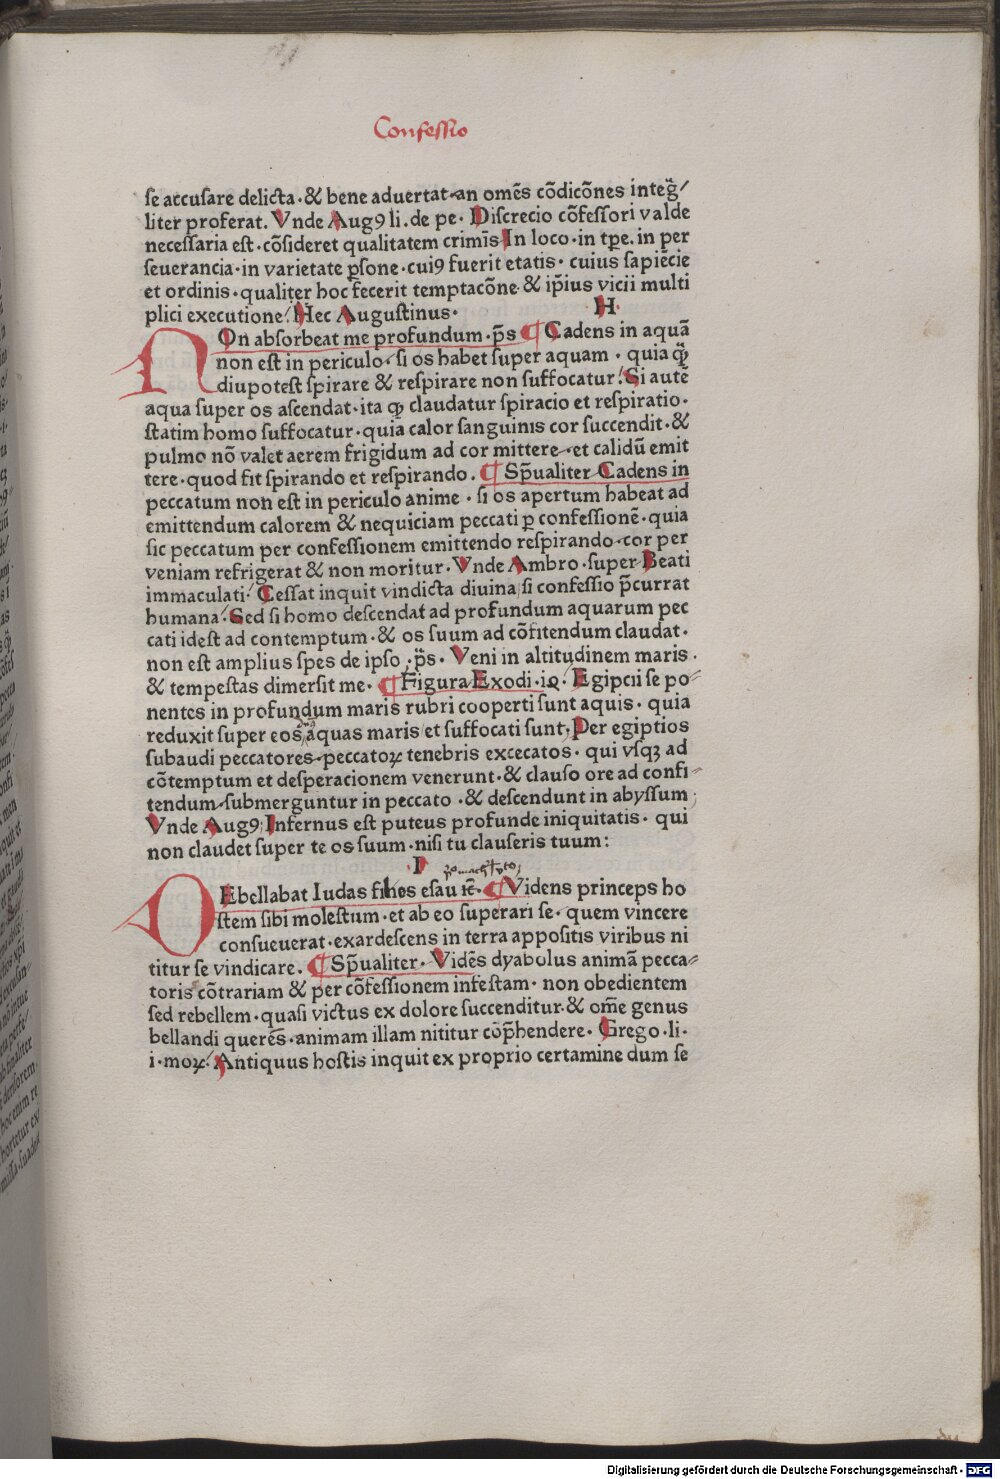 Confessio
se accusare delicta · & bene aduertat · an omēs cōdicōnes integ̃/
liter proferat. Vnde Augꝯ li. de pe · Discrecio cōfessori valde
necessaria est · cōsideret qualitatem crimīs In loco · in tpe̅. in per
seuerancia · in varietate ꝑsone · cuiꝯ fuerit etatis · cuius sapiēcie
et ordinis · qualiter hoc fecerit temptacōne · & ip̄ius vicii multi
plici executione: Hec Augustinus ·
H ·
NOn absorbeat me profundum · p̄s ¶ Cadens in aquā
non est in periculo · si os habet super aquam · quia ꝙ̄
diu potest spirare & respirare non suffocatur: Si autē
aqua super os ascendat · ita ꝙ claudatur spiracio et respiratio ·
statim homo suffocatur · quia calor sanguinis cor succendit · &
pulmo nō valet aerem frigidum ad cor mittere · et calidū emit
tere · quod fit spirando et respirando. ¶ Sp̄ualiter Cadens in
peccatum non est in periculo anime · si os apertum habeat ad
emittendum calorem & nequiciam peccati ꝑ confessionē · quia
sic peccatum per confessionem emittendo respirando · cor per
veniam refrigerat & non moritur · Vnde Ambro · super Beati
immaculati: Cessat inquit vindicta diuina si confessio p̄currat
humana: Sed si homo descendat ad profundum aquarum pec
cati idest ad contemptum · & os suum ad cōfitendum claudat ·
non est amplius spes de ipso · p̄s · Veni in altitudinem maris ·
& tempestas dimersit me · ¶ Figura Exodi · iꝗ · Egipcii se po⸗
nentes in profundum maris rubri cooperti sunt aquis · quia
reduxit super eos aquas maris et suffocati sunt; Per egiptios
subaudi peccatores · peccatoꝝ tenebris excecatos · qui vsqꝫ ad
cōtemptum et desperacionem venerunt · & clauso ore ad confi⸗
tendum · submerguntur in peccato · & descendunt in abyssum;
Vnde Augꝯ; Infernus est puteus profunde iniquitatis · qui
non claudet super te os suum · nisi tu clauseris tuum:
I
DEbellabat Iudas filios esau ic̄ · ¶ Videns princeps ho
stem sibi molestum · et ab eo superari se · quem vincere
consueuerat · exardescens in terra appositis viribus ni
titur se vindicare. ¶ Sp̄ualiter · Vidēs dyabolus animā pecca⸗
toris cōtrariam & per cōfessionem infestam · non obedientem
sed rebellem · quasi victus ex dolore succenditur · & om̄e genus
bellandi querēs · animam illam nititur cōp̄hendere · Grego · li ·
i · moꝝ: Antiquus hostis inquit ex proprio certamine dum se
Digitalisierung gefördert durch die Deutsche Forschungsgemeinschaft · DFG